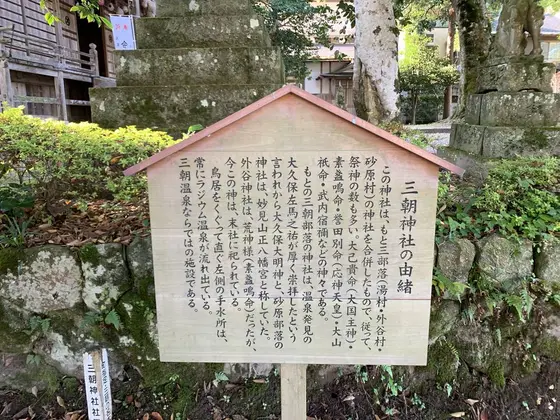 三朝神社の由緒
この神社は、もと三部落(湯村・外谷村・
砂原村)の神社を合併したもので、従って、
祭神の数も多い。大己貴命(大国主神)・
素盞鳴命・誉田別命(応神天皇)・大山
祇命・武内宿禰などの神々である。
もとの三朝部落の神社は、温泉発見の
大久保左馬之祐が厚く崇拝したという
言われから大久保大明神と、砂原部落の
神社は、妙見山正八幡宮と称していた。
外谷神社は、荒神様(素盞鳴命)だったが、
今この神は、末社に祀られている。
鳥居をくぐって直ぐ左側の手水所は、
常にラジウム温泉が流れ出ている。
三朝温泉ならではの施設である。
三朝神社社